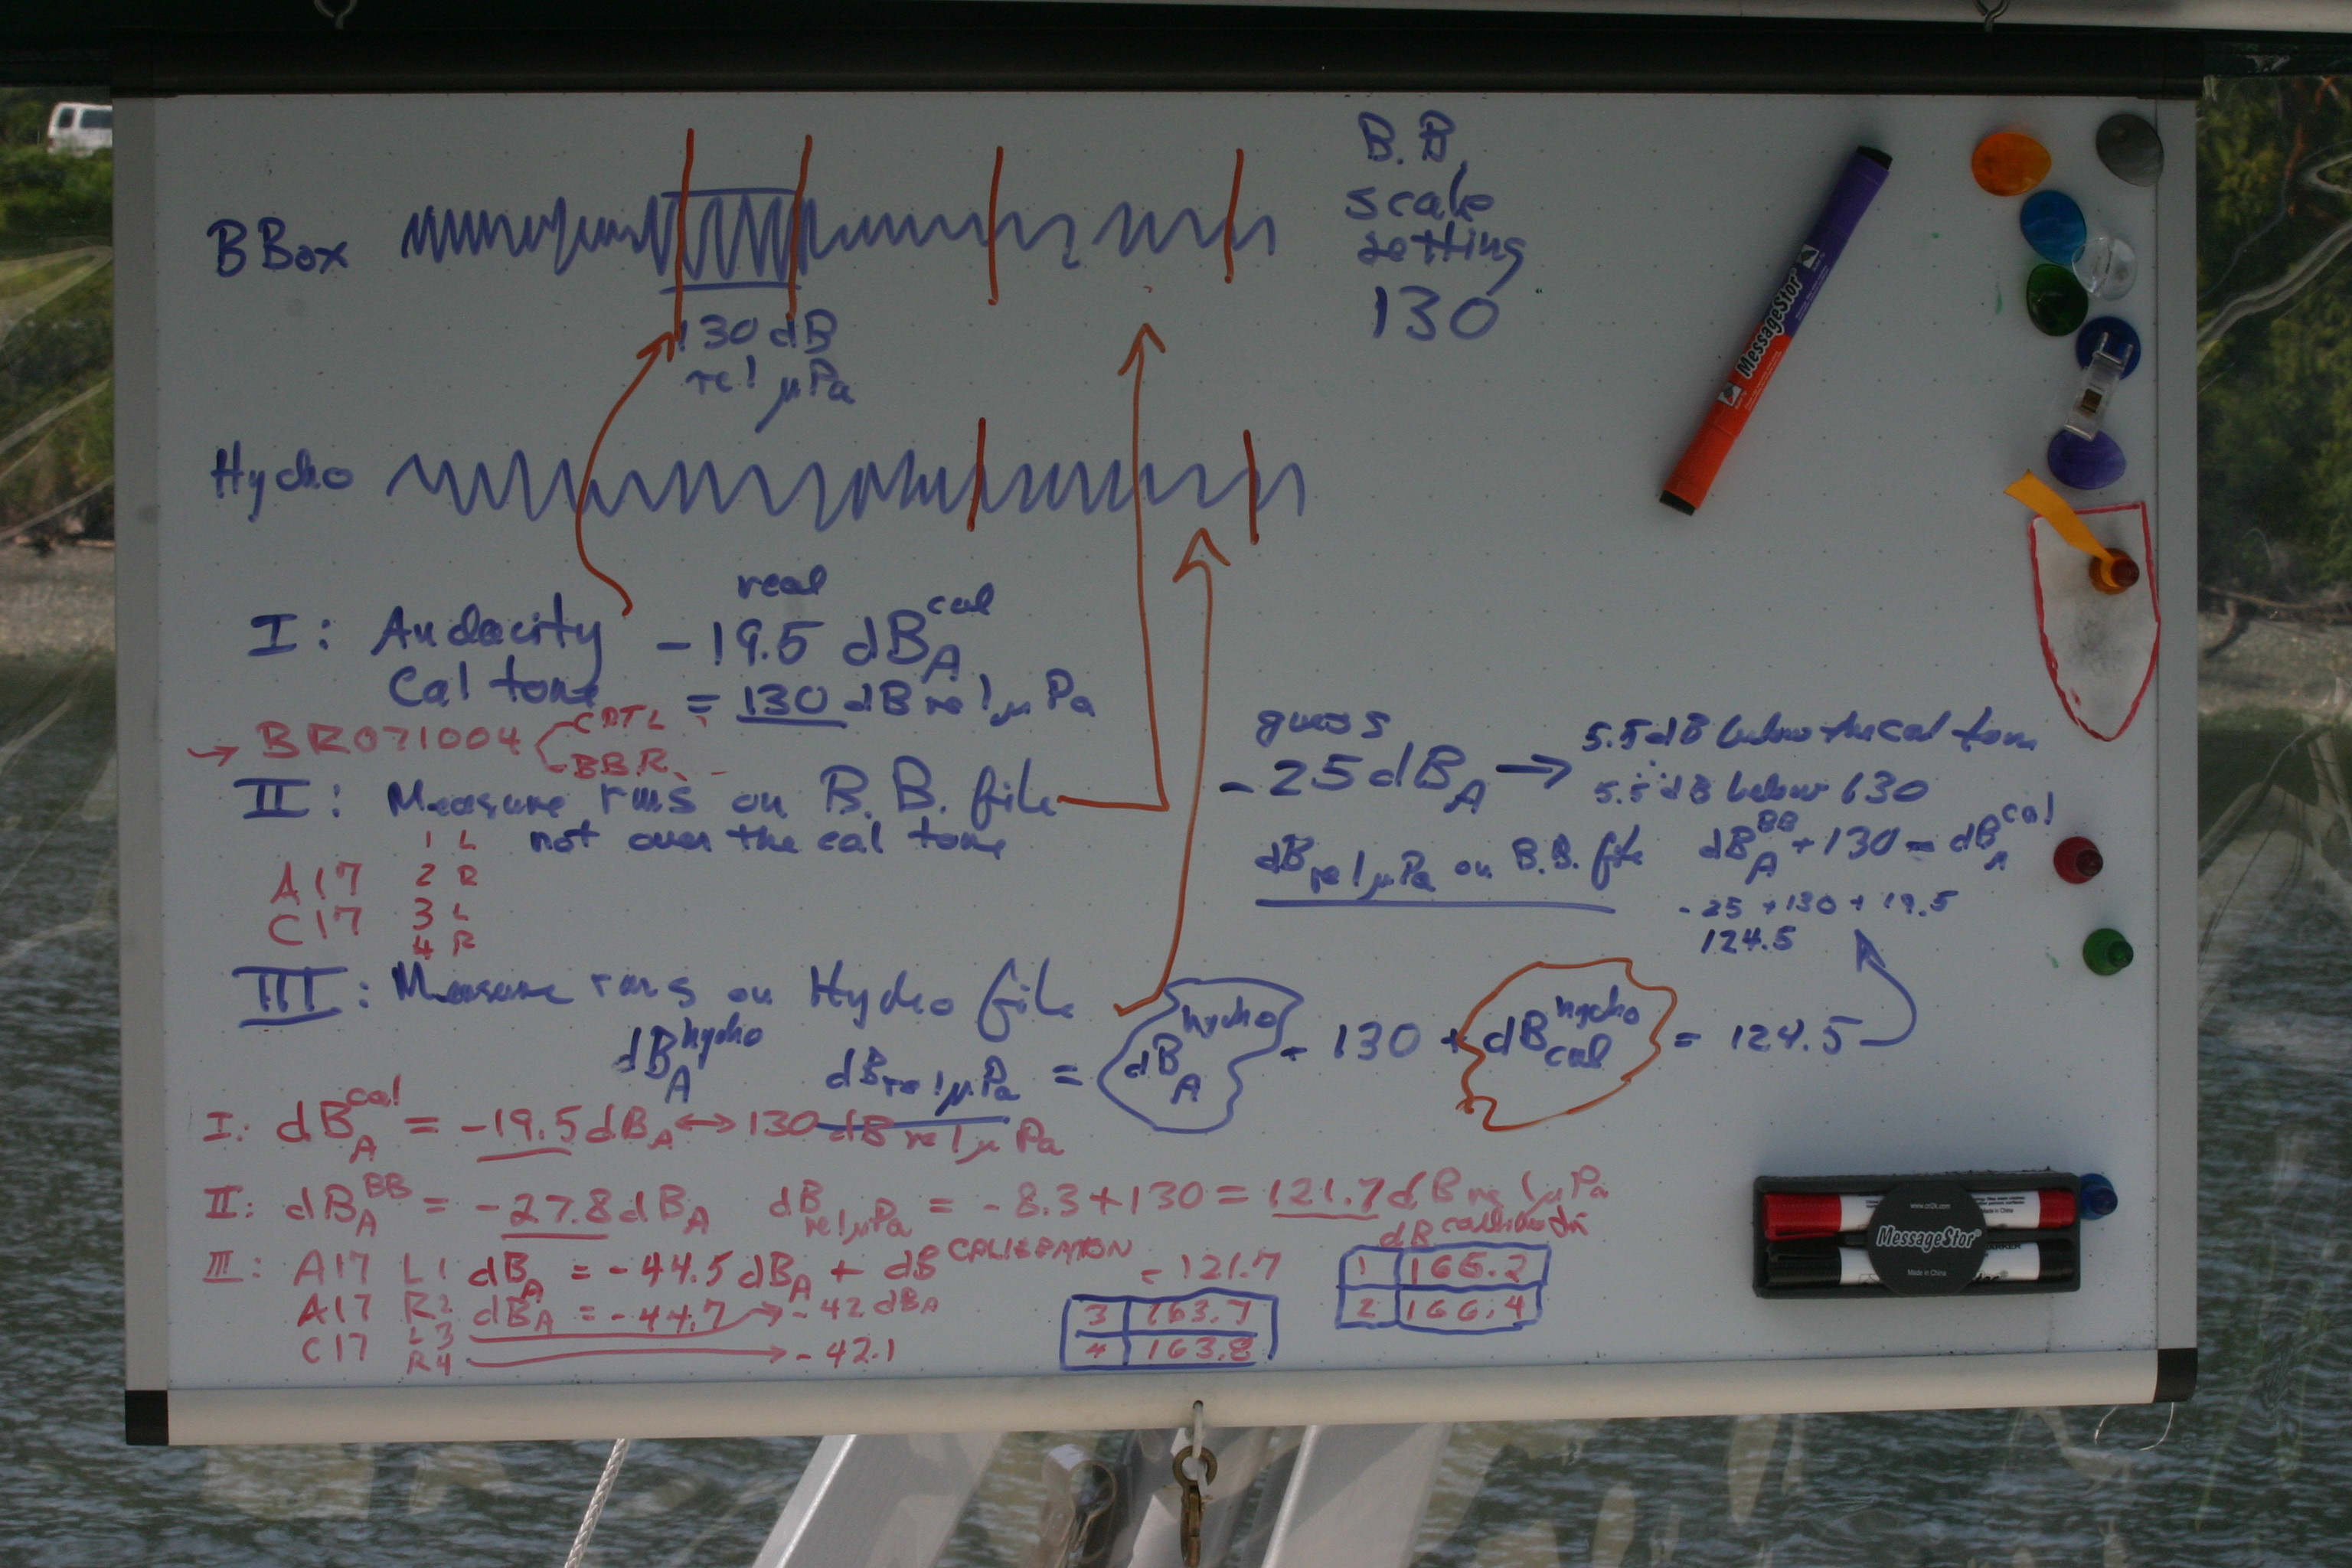 B.B.
scale
setting
130
BBox
130 dB
re 1 μPa
Hydro
real
I: Audacity -19.5 dB_A^cal
Cal tone = 130 dB re 1 μPa
→ BR071004
BBR
II: Measure rms on B.B. file
not over the cal tone
1 L
A17 2 R
C17 3 L
4 R
guess
-25 dB_A → 5.5 dB below the cal tone
5.5 dB below 130
dB re 1 μPa on B.B. file
dB_A^BB + 130 - dB_A^cal
-25 + 130 + 19.5
124.5
III: Measure rms on Hydro file
dB_A^hydro
dB re 1 μPa = dB_A^hydro - 130 + dB_cal^hydro = 124.5
I: dB_A^cal = -19.5 dB_A ↔ 130 dB re 1 μPa
II: dB_A^BB = -27.8 dB_A dB re 1 μPa = -8.3 + 130 = 121.7 dB re 1 μPa
III: A17 L1 dB_A = -44.5 dB_A + dB^CALIBRATION = 121.7
A17 R2 dB_A = -44.7 → -42 dB_A
C17 L3
R4 → -42.1
3 163.7
4 163.8
1 166.2
2 166.4
MessageStor
MessageStor
Made in China